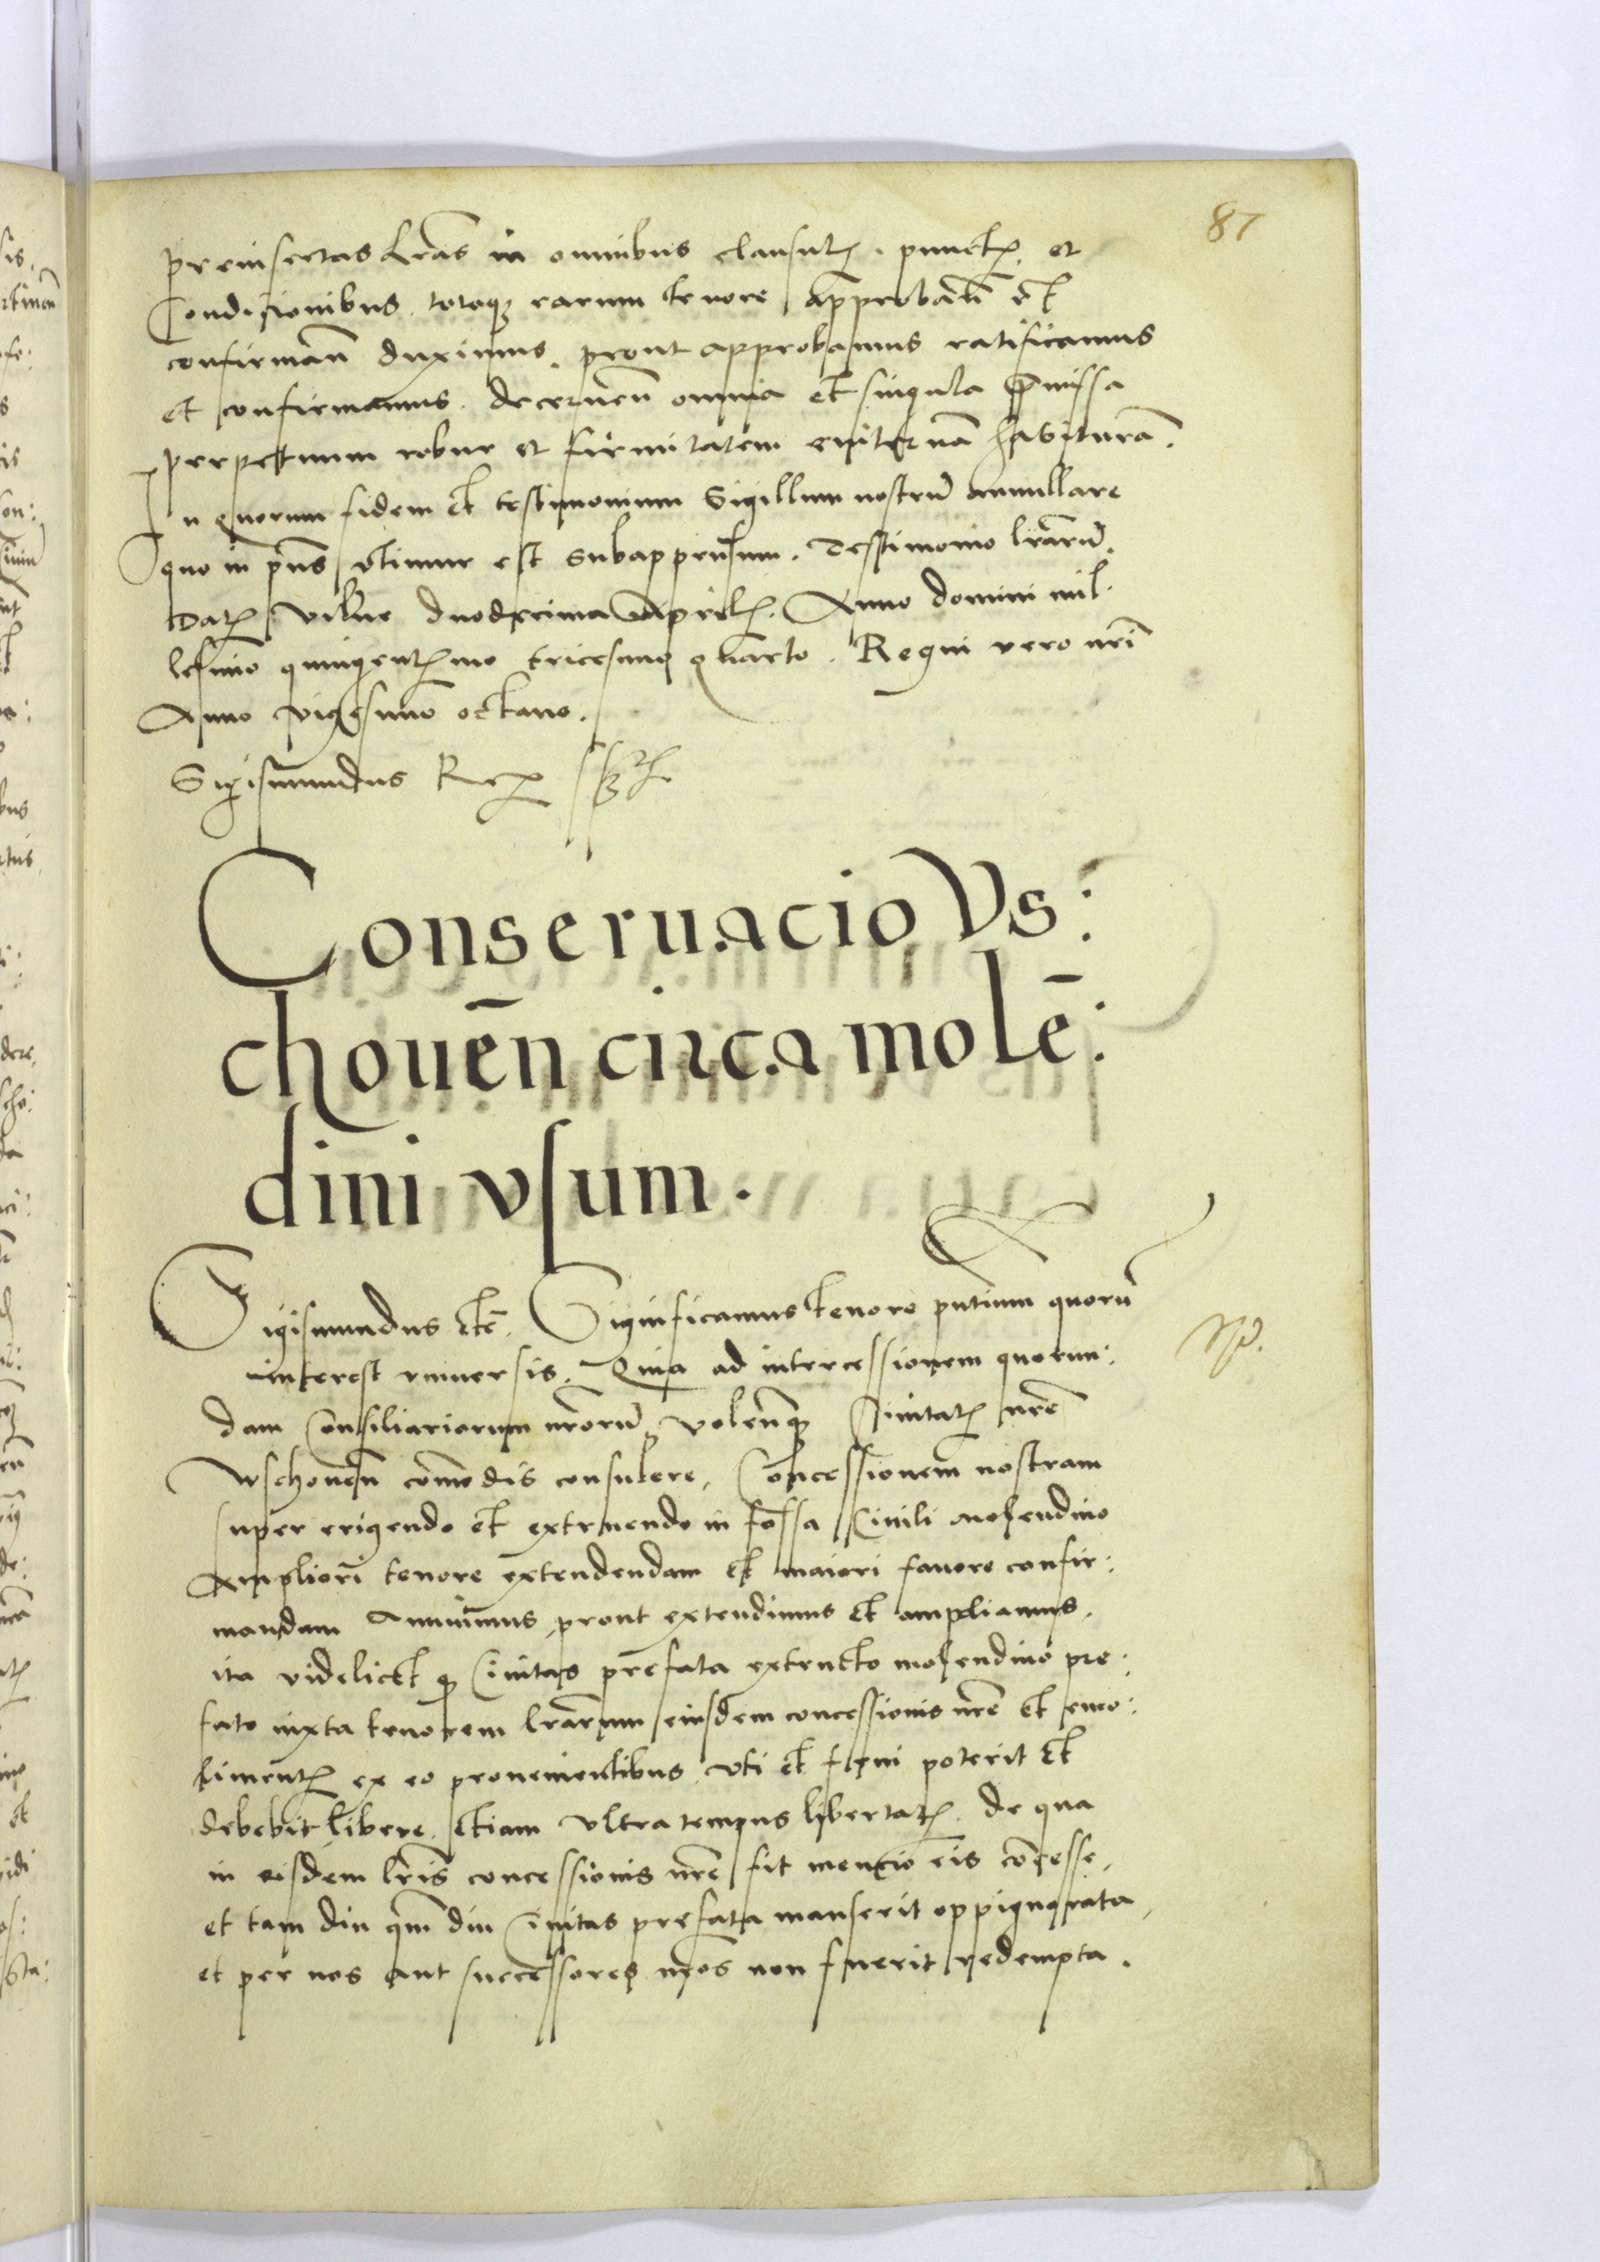 87
preinsertas lr̃as in omnibus clausul(is) . punct(is) et
Condicionibus . totoq(ue) earum tenore approbañ et
confirmañ duximus . prout approbamus ratificamus
et confirmamus . decerneñ omnia et singula p̃missa
perpetuum robur et firmitatem eviternã habiturã .
In quorum fidem et testimonium Sigillum nostrũ annullare
quo in pñs vtimur est subappensum . Testimonio lr̃arũ .
Dat(um) Vilne duodecima Aprilis . Anno domini mil
lesimo quingentesimo tricesimo quarto . Regni vero nr̃i
Anno vigesimo octauo .
Sigismundus Rex sst
Conseruacio Vs:
chouēn circa molē:
dini vsum .
Sigismundus etc̃ . Significamus tenore pñtium quorũ
interest vniuersis . Quia ad intercessionem quorun:
dam Consiliariorum nr̃orũ volenq(ue) Ciuitat(is) nr̃e
Wschoueñ com̃odis consulere , Concessionem nostram
super erigendo et extruendo in fossa Ciuili molendino
Ampliori tenore extendendam et maiori fauore confir:
mandam Annuimus prout extendimus et ampliamus .
ita videlicet q(uod) Ciuitas prefata extructo molendino pre:
fato iuxta tenorem lr̃arum eiusdem concessionis nr̃e et emo:
liment(is) ex eo prouenientibus vti et frui poterit et
debebit libere . etiam vltra tempus libertat(is) . de qua
in eisdem lr̃is concessionis nr̃e fit mencio eis concesse ,
et tam diu qm̃ diu Ciuitas prefata manserit oppignorata ,
et per nos aut successores nr̃os non fuerit redempta .